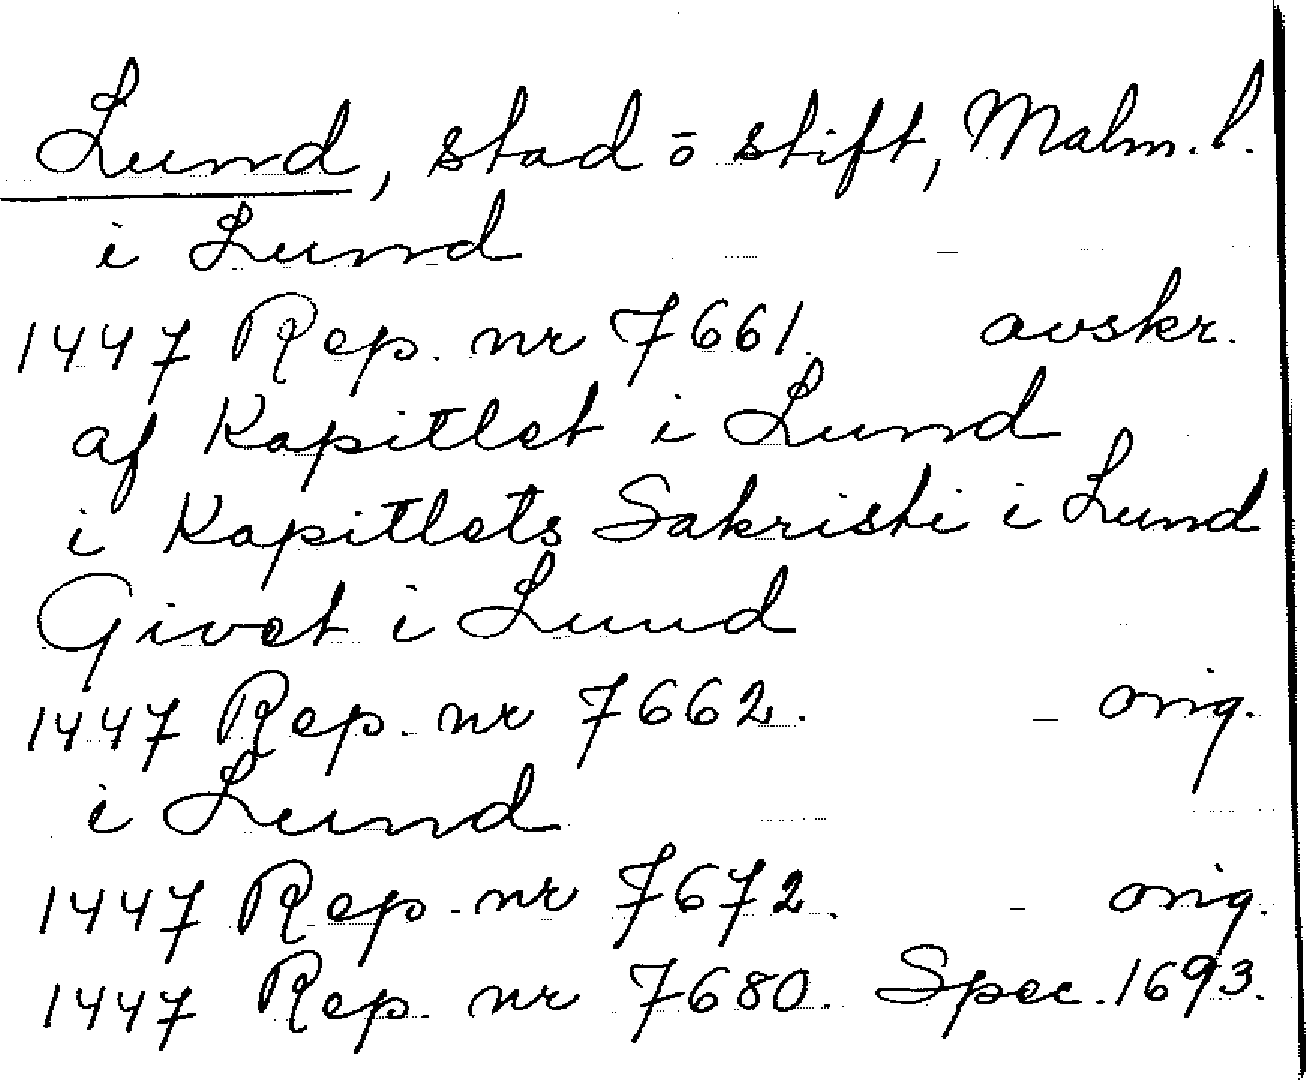 Lund, stad ō stift, Malm. l.
i Lund
1447 Rep. nr 7661. avskr.
af Kapitlet i Lund
i Kapitlets Sakristi i Lund
Givet i Lund
1447 Rep. nr 7662. - orig.
i Lund
1447 Rep. nr 7672. - orig.
1447 Rep. nr 7680. Spec. 1693.